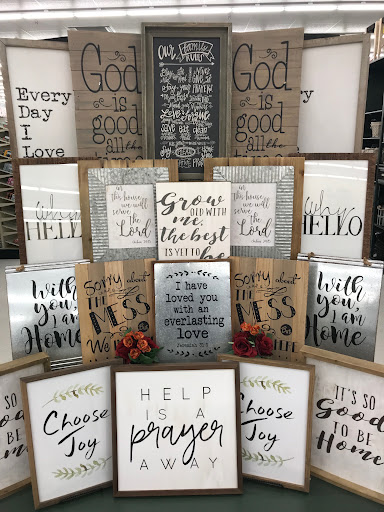 Every
Day
I
Love
God
is
good
all the
Our Family
RULES
God
is
good
all the
why,
HELLO
in
this house
we will
serve the
Lord
GROW
OLD WITH
me,
the best
IS YET TO be
in
this house
we will
serve the
Lord
why,
HELLO
With
you,
I am
Home
SORRY about
THE
MESS
I have
loved you
with an
everlasting
love
Jeremiah 31:3
SORRY about
THE
MESS
With
you,
I am
Home
IT'S SO
Good
TO BE
Home
Choose
Joy
HELP
IS A
prayer
AWAY
Choose
Joy
IT'S SO
Good
TO BE
Home